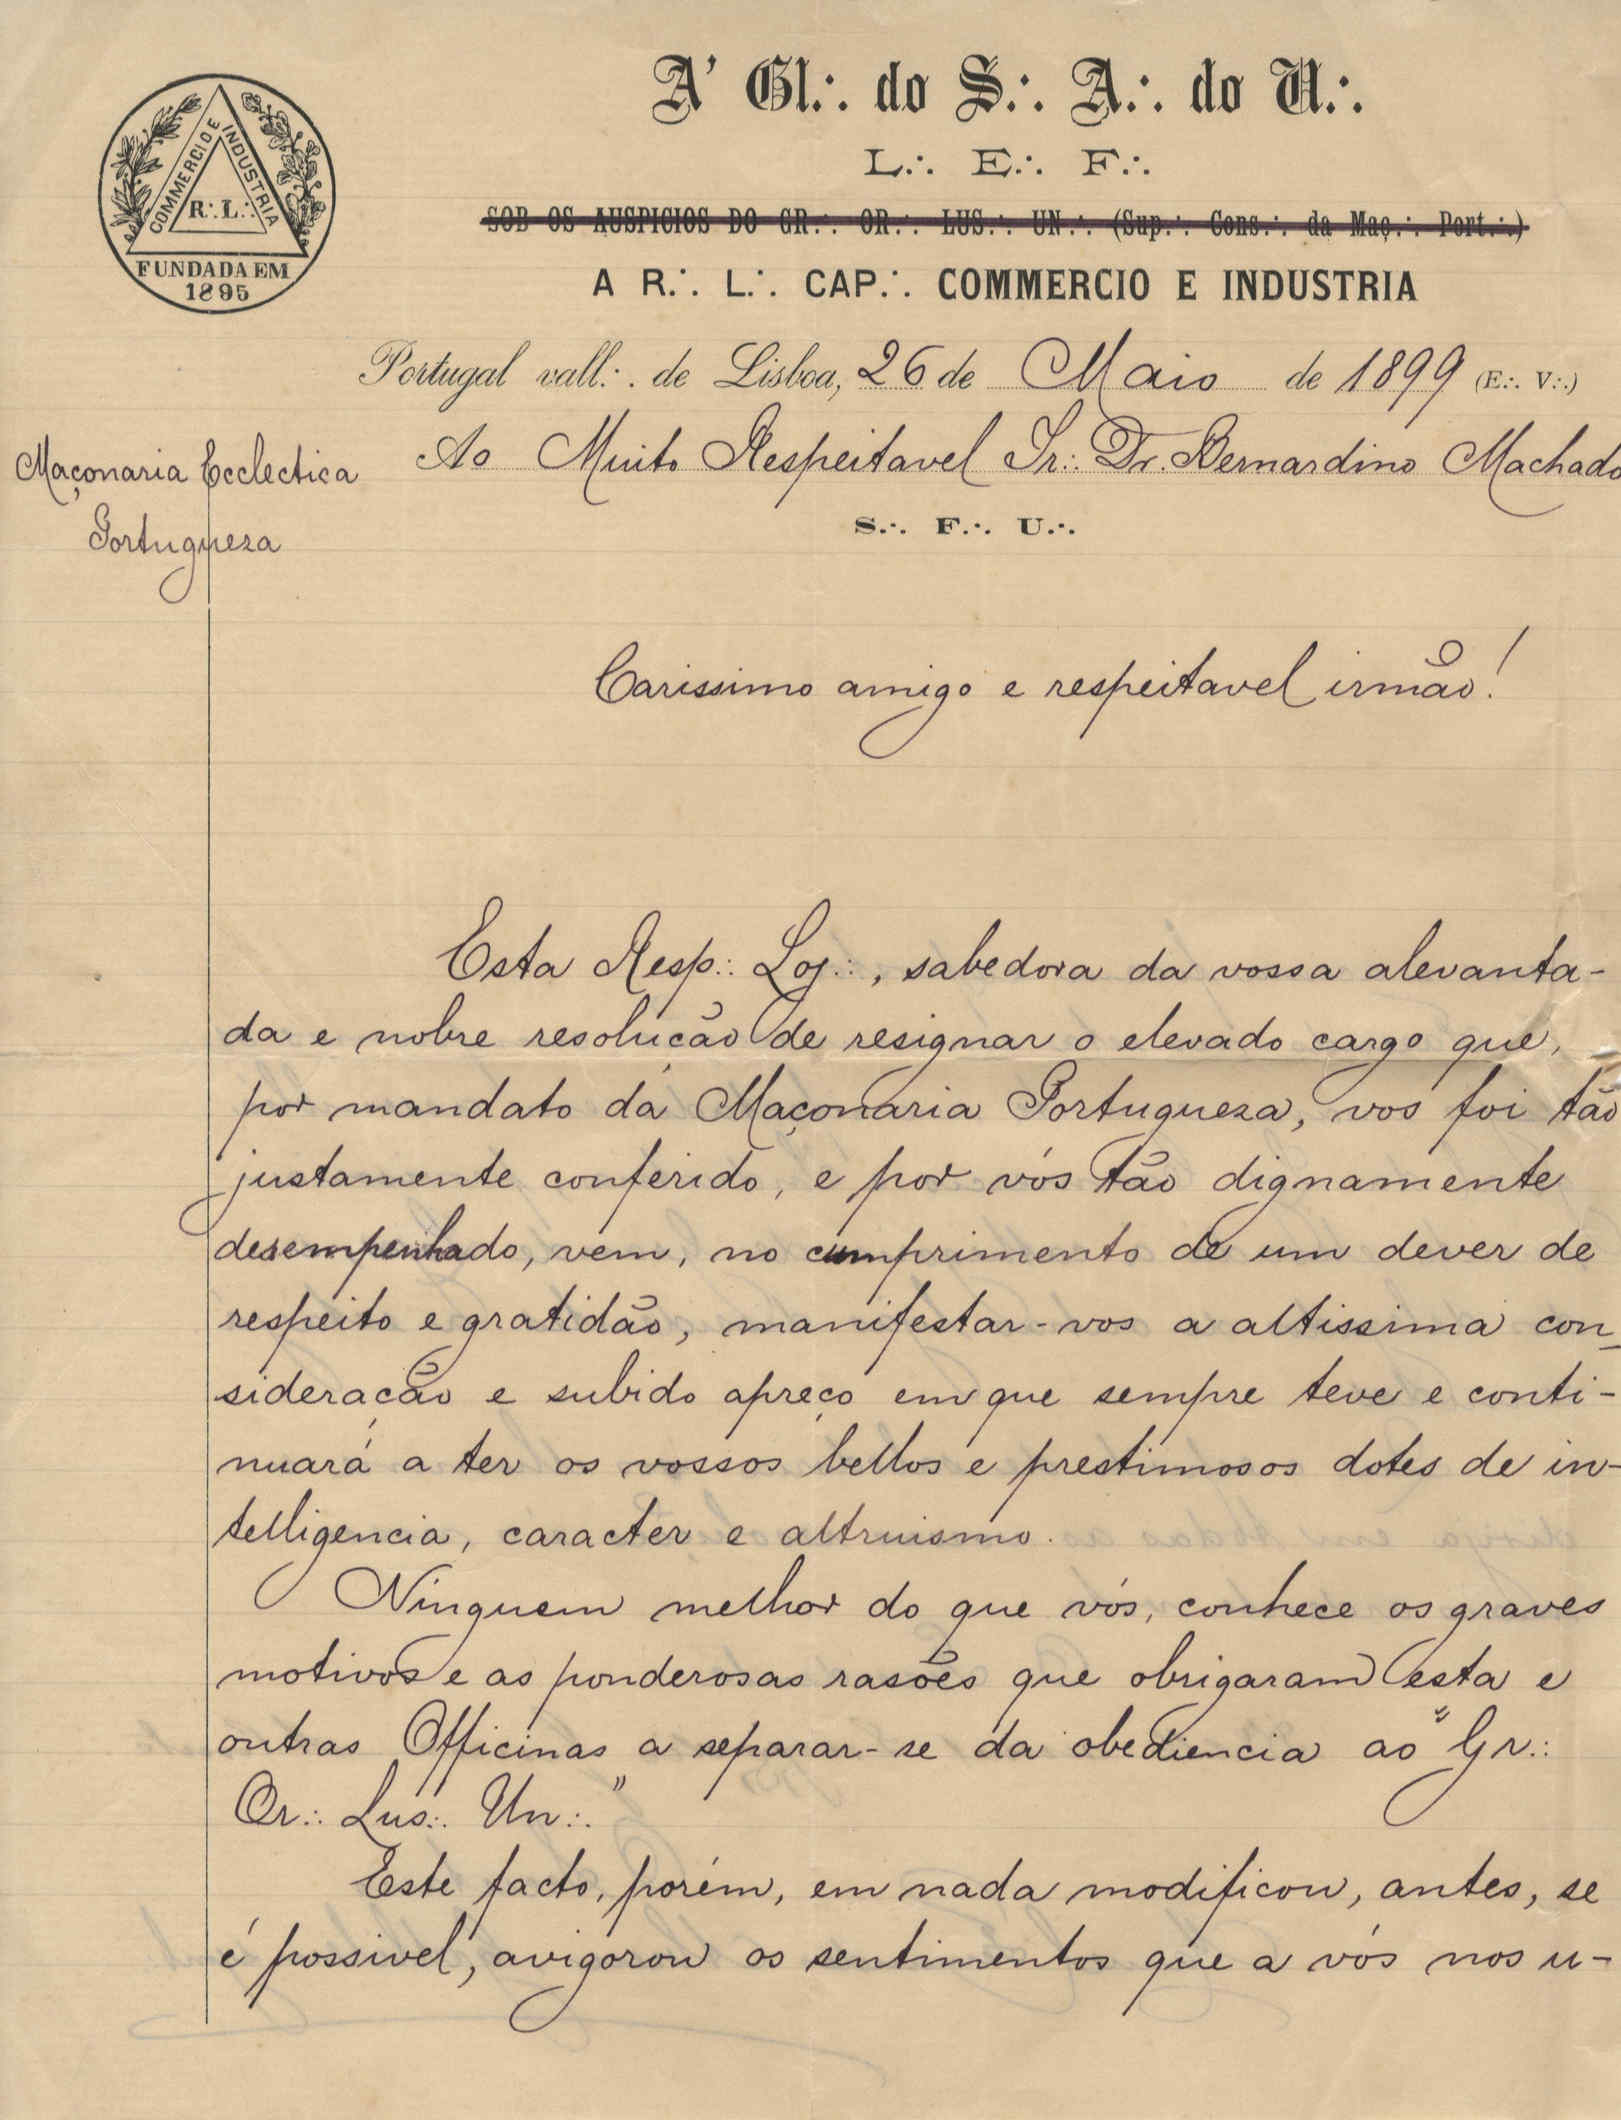 COMMERCIO E INDUSTRIA
R∴ L∴
FUNDADA EM
1895
A' Gl∴ do S∴ A∴ do U∴
L∴ E∴ F∴
SOB OS AUSPICIOS DO GR∴ OR∴ LUS∴ UN∴ (Sup∴ Cons∴ da Maç∴ Port∴)
A R∴ L∴ CAP∴ COMMERCIO E INDUSTRIA
Portugal vall∴ de Lisboa, 26 de Maio de 1899 (E∴ V∴)
Maçonaria Ecclectica
Portugueza
Ao Muito Respeitavel Ir∴ Dr. Bernardino Machado
S∴ F∴ U∴
Carissimo amigo e respeitavel irmão!
Esta Resp∴ Loj∴, sabedora da vossa alevanta-
da e nobre resolução de resignar o elevado cargo que,
por mandato da Maçonaria Portugueza, vos foi tão
justamente conferido, e por vós tão dignamente
desempenhado, vem, no cumprimento de um dever de
respeito e gratidão, manifestar-vos a altissima con-
sideração e subido apreço em que sempre teve e conti-
nuará a ter os vossos bellos e prestimosos dotes de in-
telligencia, caracter e altruismo.
Ninguem melhor do que vós, conhece os graves
motivos e as ponderosas rasões que obrigaram esta e
outras Officinas a separar-se da obediencia ao "Gr∴
Or∴ Lus∴ Un∴"
Este facto, porém, em nada modificou, antes, se
é possivel, avigorou os sentimentos que a vós nos u-